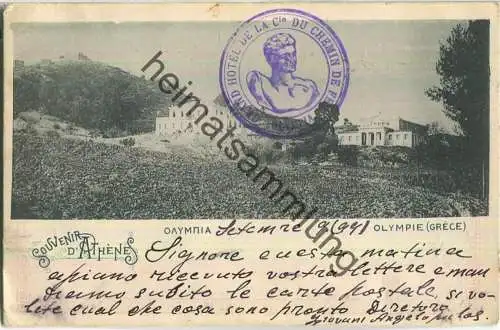 GRAND HOTEL DE LA Cie DU CHEMIN DE
heimatsammlung
ΟΛΥΜΠΙΑ Setembre 9/ OLYMPIE (GRÈCE)
SOUVENIR D'ATHÈNES
Signore questa matina
apiano ricevuto vostra lettere e man
tremo subito le carte postale, si vo
lete cual che cosa sono pronto Diretore
Giovani Angelo